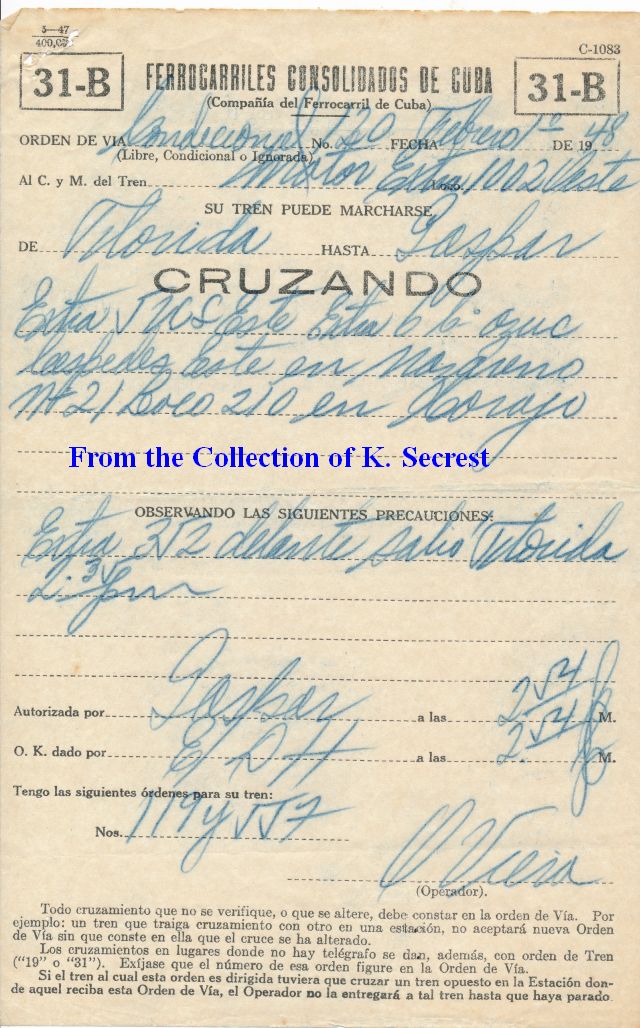 5—47
400,0
C-1083
31-B FERROCARRILES CONSOLIDADOS DE CUBA 31-B
(Compañía del Ferrocarril de Cuba)
ORDEN DE VIA Condicional No. 120 FECHA Febrero 1º DE 1948
(Libre, Condicional o Ignorada)
Al C. y M. del Tren Motor Extra 1002 Oeste
SU TREN PUEDE MARCHARSE
DE Florida HASTA Gaspar
CRUZANDO
Extra Este Extra
Cespedes Este en Nazareno
Nº 21 Loco 210 en
From the Collection of K. Secrest
OBSERVANDO LAS SIGUIENTES PRECAUCIONES:
Extra 352 delante salio Florida
2.35 pm
Autorizada por Gaspar a las 2.54 P M.
O. K. dado por a las 2.54 P M.
Tengo las siguientes órdenes para su tren:
Nos. 119 y 557
O Viera
(Operador).
Todo cruzamiento que no se verifique, o que se altere, debe constar en la orden de Vía. Por
ejemplo: un tren que traiga cruzamiento con otro en una estación, no aceptará nueva Orden
de Vía sin que conste en ella que el cruce se ha alterado.
Los cruzamientos en lugares donde no hay telégrafo se dan, además, con orden de Tren
("19" o "31"). Exíjase que el número de esa orden figure en la Orden de Vía.
Si el tren al cual esta orden es dirigida tuviera que cruzar un tren opuesto en la Estación don-
de aquel reciba esta Orden de Vía, el Operador no la entregará a tal tren hasta que haya parado.